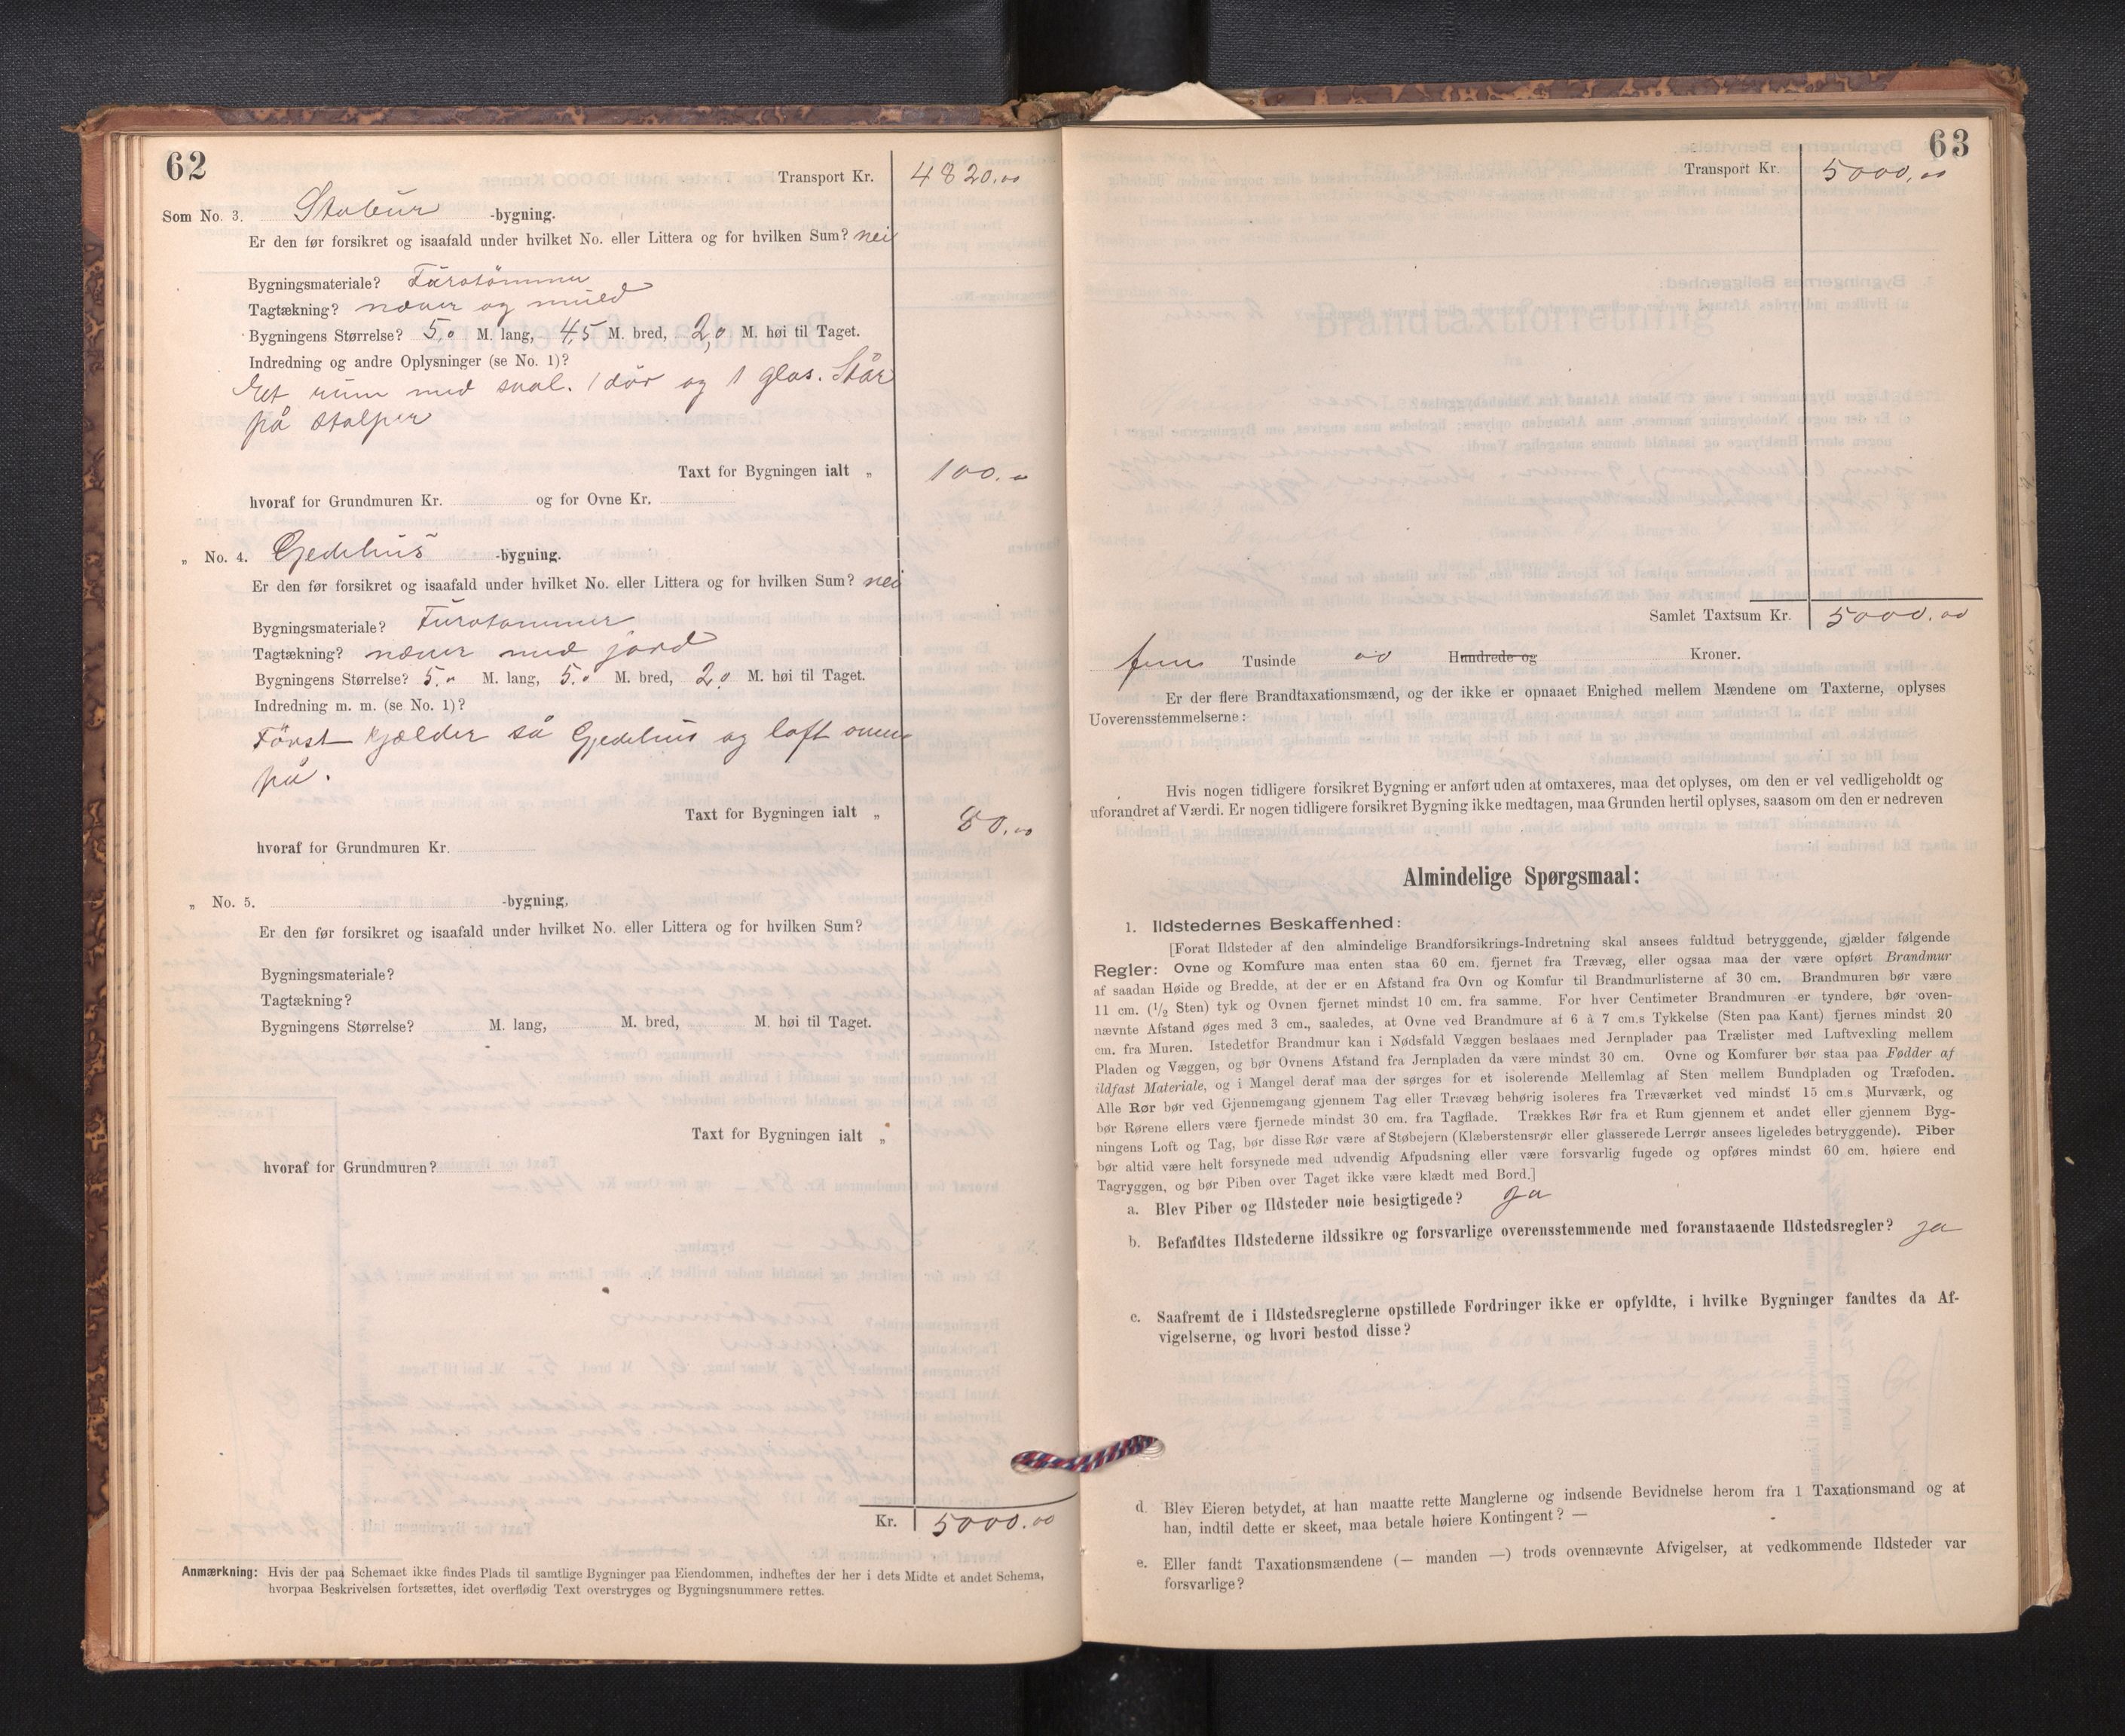 62
Transport Kr. 4820.00
Som No. 3. Stabur -bygning.
Er den før forsikret og isaafald under hvilket No. eller Littera og for hvilken Sum? nei
Bygningsmateriale? Furotömmer
Tagtækning? næver og muld
Bygningens Størrelse? 5,0 M. lang, 4,5 M. bred, 2,0 M. høi til Taget.
Indredning og andre Oplysninger (se No. 1)?
Et rum med sval. 1 dör og 1 glas. Står
på stolper
Taxt for Bygningen ialt „ 100.00
hvoraf for Grundmuren Kr. og for Ovne Kr.
„ No. 4. Gjedehus -bygning.
Er den før forsikret og isaafald under hvilket No. eller Littera og for hvilken Sum? nei
Bygningsmateriale? Furotømmer
Tagtækning? næver med jord
Bygningens Størrelse? 5,0 M. lang, 5,0 M. bred, 2,0 M. høi til Taget.
Indredning m. m. (se No. 1)?
Först kjælder så Gjedehus og loft oven
på.
Taxt for Bygningen ialt „ 80.00
hvoraf for Grundmuren Kr.
„ No. 5. -bygning.
Er den før forsikret og isaafald under hvilket No. eller Littera og for hvilken Sum?
Bygningsmateriale?
Tagtækning?
Bygningens Størrelse? M. lang, M. bred, M. høi til Taget.
Taxt for Bygningen ialt „
hvoraf for Grundmuren?
Kr. 5000.00
Anmærkning: Hvis der paa Schemaet ikke findes Plads til samtlige Bygninger paa Eiendommen, indheftes der her i dets Midte et andet Schema,
hvorpaa Beskrivelsen fortsættes, idet overflødig Text overstryges og Bygningsnummere rettes.
63
Transport Kr. 5000.00
Samlet Taxtsum Kr. 5000.00
fem Tusinde 00 Hundrede og Kroner.
Er der flere Brandtaxationsmænd, og der ikke er opnaaet Enighed mellem Mændene om Taxterne, oplyses
Uoverensstemmelserne:
Hvis nogen tidligere forsikret Bygning er anført uden at omtaxeres, maa det oplyses, om den er vel vedligeholdt og
uforandret af Værdi. Er nogen tidligere forsikret Bygning ikke medtagen, maa Grunden hertil oplyses, saasom om den er nedreven
Almindelige Spørgsmaal:
1. Ildstedernes Beskaffenhed:
[Forat Ildsteder af den almindelige Brandforsikrings-Indretning skal ansees fuldtud betryggende, gjælder følgende
Regler: Ovne og Komfure maa enten staa 60 cm. fjernet fra Trævæg, eller ogsaa maa der være opført Brandmur
af saadan Høide og Bredde, at der er en Afstand fra Ovn og Komfur til Brandmurlisterne af 30 cm. Brandmuren bør være
11 cm. (1/2 Sten) tyk og Ovnen fjernet mindst 10 cm. fra samme. For hver Centimeter Brandmuren er tyndere, bør oven-
nævnte Afstand øges med 3 cm., saaledes, at Ovne ved Brandmure af 6 à 7 cm.s Tykkelse (Sten paa Kant) fjernes mindst 20
cm. fra Muren. Istedetfor Brandmur kan i Nødsfald Væggen beslaaes med Jernplader paa Trælister med Luftvexling mellem
Pladen og Væggen, og bør Ovnens Afstand fra Jernpladen da være mindst 30 cm. Ovne og Komfurer bør staa paa Fødder af
ildfast Materiale, og i Mangel deraf maa der sørges for et isolerende Mellemlag af Sten mellem Bundpladen og Træfoden.
Alle Rør bør ved Gjennemgang gjennem Tag eller Trævæg behørig isoleres fra Træværket ved mindst 15 cm.s Murværk, og
bør Rørene ellers være fjernede mindst 30 cm. fra Tagflade. Trækkes Rør fra et Rum gjennem et andet eller gjennem Byg-
ningens Loft og Tag, bør disse Rør være af Støbejern (Klæberstensrør eller glasserede Lerrør ansees ligeledes betryggende). Piber
bør altid være helt forsynede med udvendig Afpudsning eller være forsvarlig fugede og opføres mindst 60 cm. høiere end
Tagryggen, og bør Piben over Taget ikke være klædt med Bord.]
a. Blev Piber og Ildsteder nøie besigtigede? ja
b. Befandtes Ildstederne ildssikre og forsvarlige overensstemmende med foranstaaende Ildstedsregler? ja
c. Saafremt de i Ildstedsreglerne opstillede Fordringer ikke er opfyldte, i hvilke Bygninger fandtes da Af-
vigelserne, og hvori bestod disse?
d. Blev Eieren betydet, at han maatte rette Manglerne og indsende Bevidnelse herom fra 1 Taxationsmand og at
han, indtil dette er skeet, maa betale høiere Kontingent? —
e. Eller fandt Taxationsmændene (— manden —) trods ovennævnte Afvigelser, at vedkommende Ildsteder var
forsvarlige?